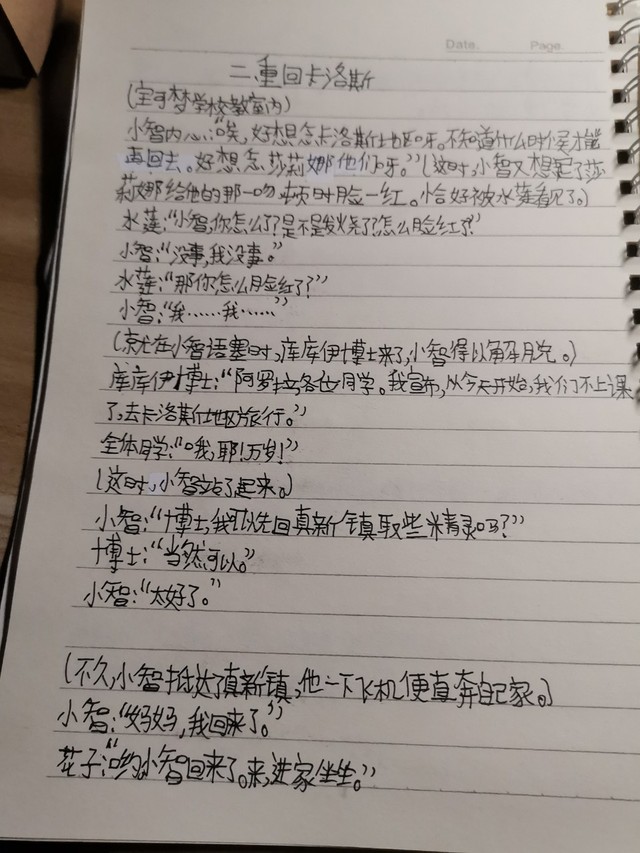 Date.    Page.
二、重回卡洛斯
(宝可梦学校教室内)
小智内心:“唉,好想念卡洛斯地区呀。不知道什么时候才能
再回去。好想念莎莉娜他们呀。”(这时,小智又想起了莎
莉娜给他的那一吻,顿时脸一红。恰好被水莲看见了。)
水莲:“小智,你怎么了?是不是发烧了?怎么脸红了?”
小智:“没事,我没事。”
水莲:“那你怎么脸红了?”
小智:“我……我……”
(就在小智语塞时,库库伊博士来了,小智得以解脱。)
库库伊博士:“阿罗拉,各位同学。我宣布,从今天开始,我们不上课
了,去卡洛斯地区旅行。”
全体同学:“哦,耶!万岁!”
(这时,小智站了起来。)
小智:“博士,我可以先回真新镇取些精灵吗?”
博士:“当然可以。”
小智:“太好了。”
(不久,小智抵达了真新镇,他一下飞机便直奔自己家。)
小智:“妈妈,我回来了。”
花子:“哟,小智回来了。来,进家坐坐。”